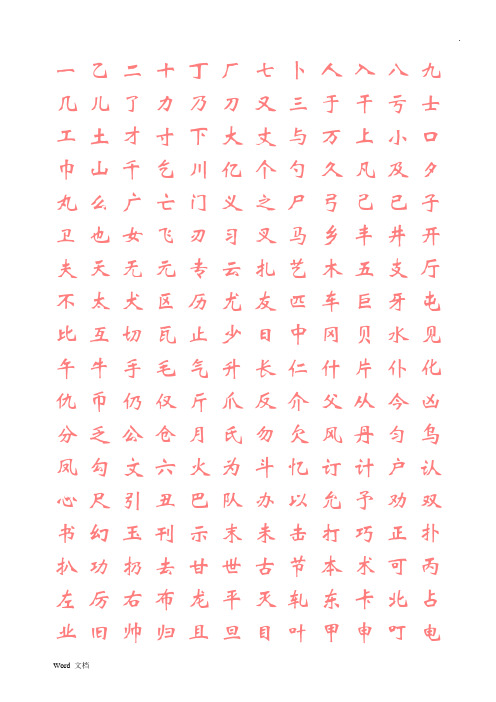 一 乙 二 十 丁 厂 七 卜 人 入 八 九
几 儿 了 力 乃 刀 又 三 于 干 亏 士
工 土 才 寸 下 大 丈 与 万 上 小 口
巾 山 千 乞 川 亿 个 勺 久 凡 及 夕
丸 么 广 亡 门 义 之 尸 弓 己 已 子
卫 也 女 飞 刃 习 叉 马 乡 丰 井 开
夫 天 无 元 专 云 扎 艺 木 五 支 厅
不 太 犬 区 历 尤 友 匹 车 巨 牙 屯
比 互 切 瓦 止 少 日 中 冈 贝 水 见
午 牛 手 毛 气 升 长 仁 什 片 仆 化
仇 币 仍 仅 斤 爪 反 介 父 从 今 凶
分 乏 公 仓 月 氏 勿 欠 风 丹 匀 乌
凤 勾 文 六 火 为 斗 忆 订 计 户 认
心 尺 引 丑 巴 队 办 以 允 予 劝 双
书 幻 玉 刊 示 末 未 击 打 巧 正 扑
扒 功 扔 去 甘 世 古 节 本 术 可 丙
左 厉 右 布 龙 平 灭 轧 东 卡 北 占
业 旧 帅 归 且 旦 目 叶 甲 申 叮 电
Word 文档